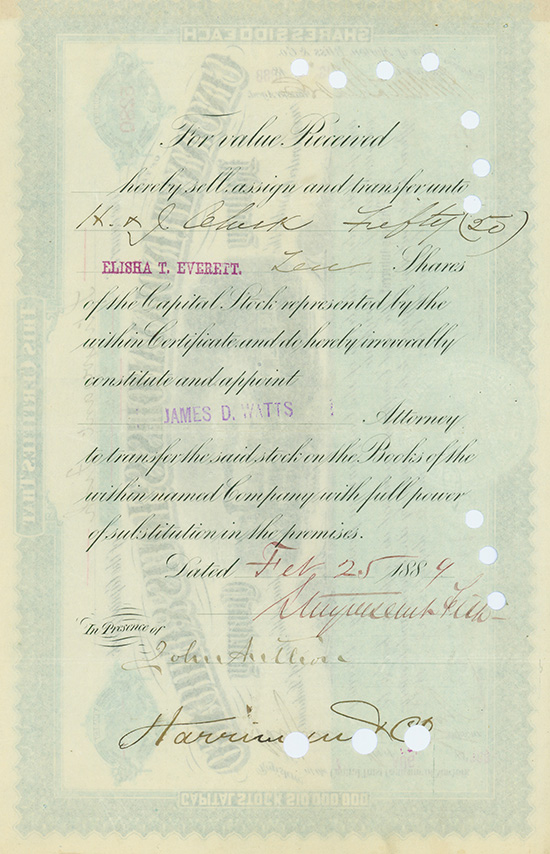 For value Received
hereby sell, assign and transfer unto
H. & J. Clark Fifty (50)
ELISHA T. EVERETT. Ten Shares
of the Capital Stock represented by the
within Certificate and do hereby irrevocably
constitute and appoint
JAMES D. WATTS Attorney
to transfer the said stock on the Books of the
within named Company with full power
of substitution in the premises.
Dated Feb 25 1884
Stuyvesant Fish
In Presence of
John
Harriman & Co